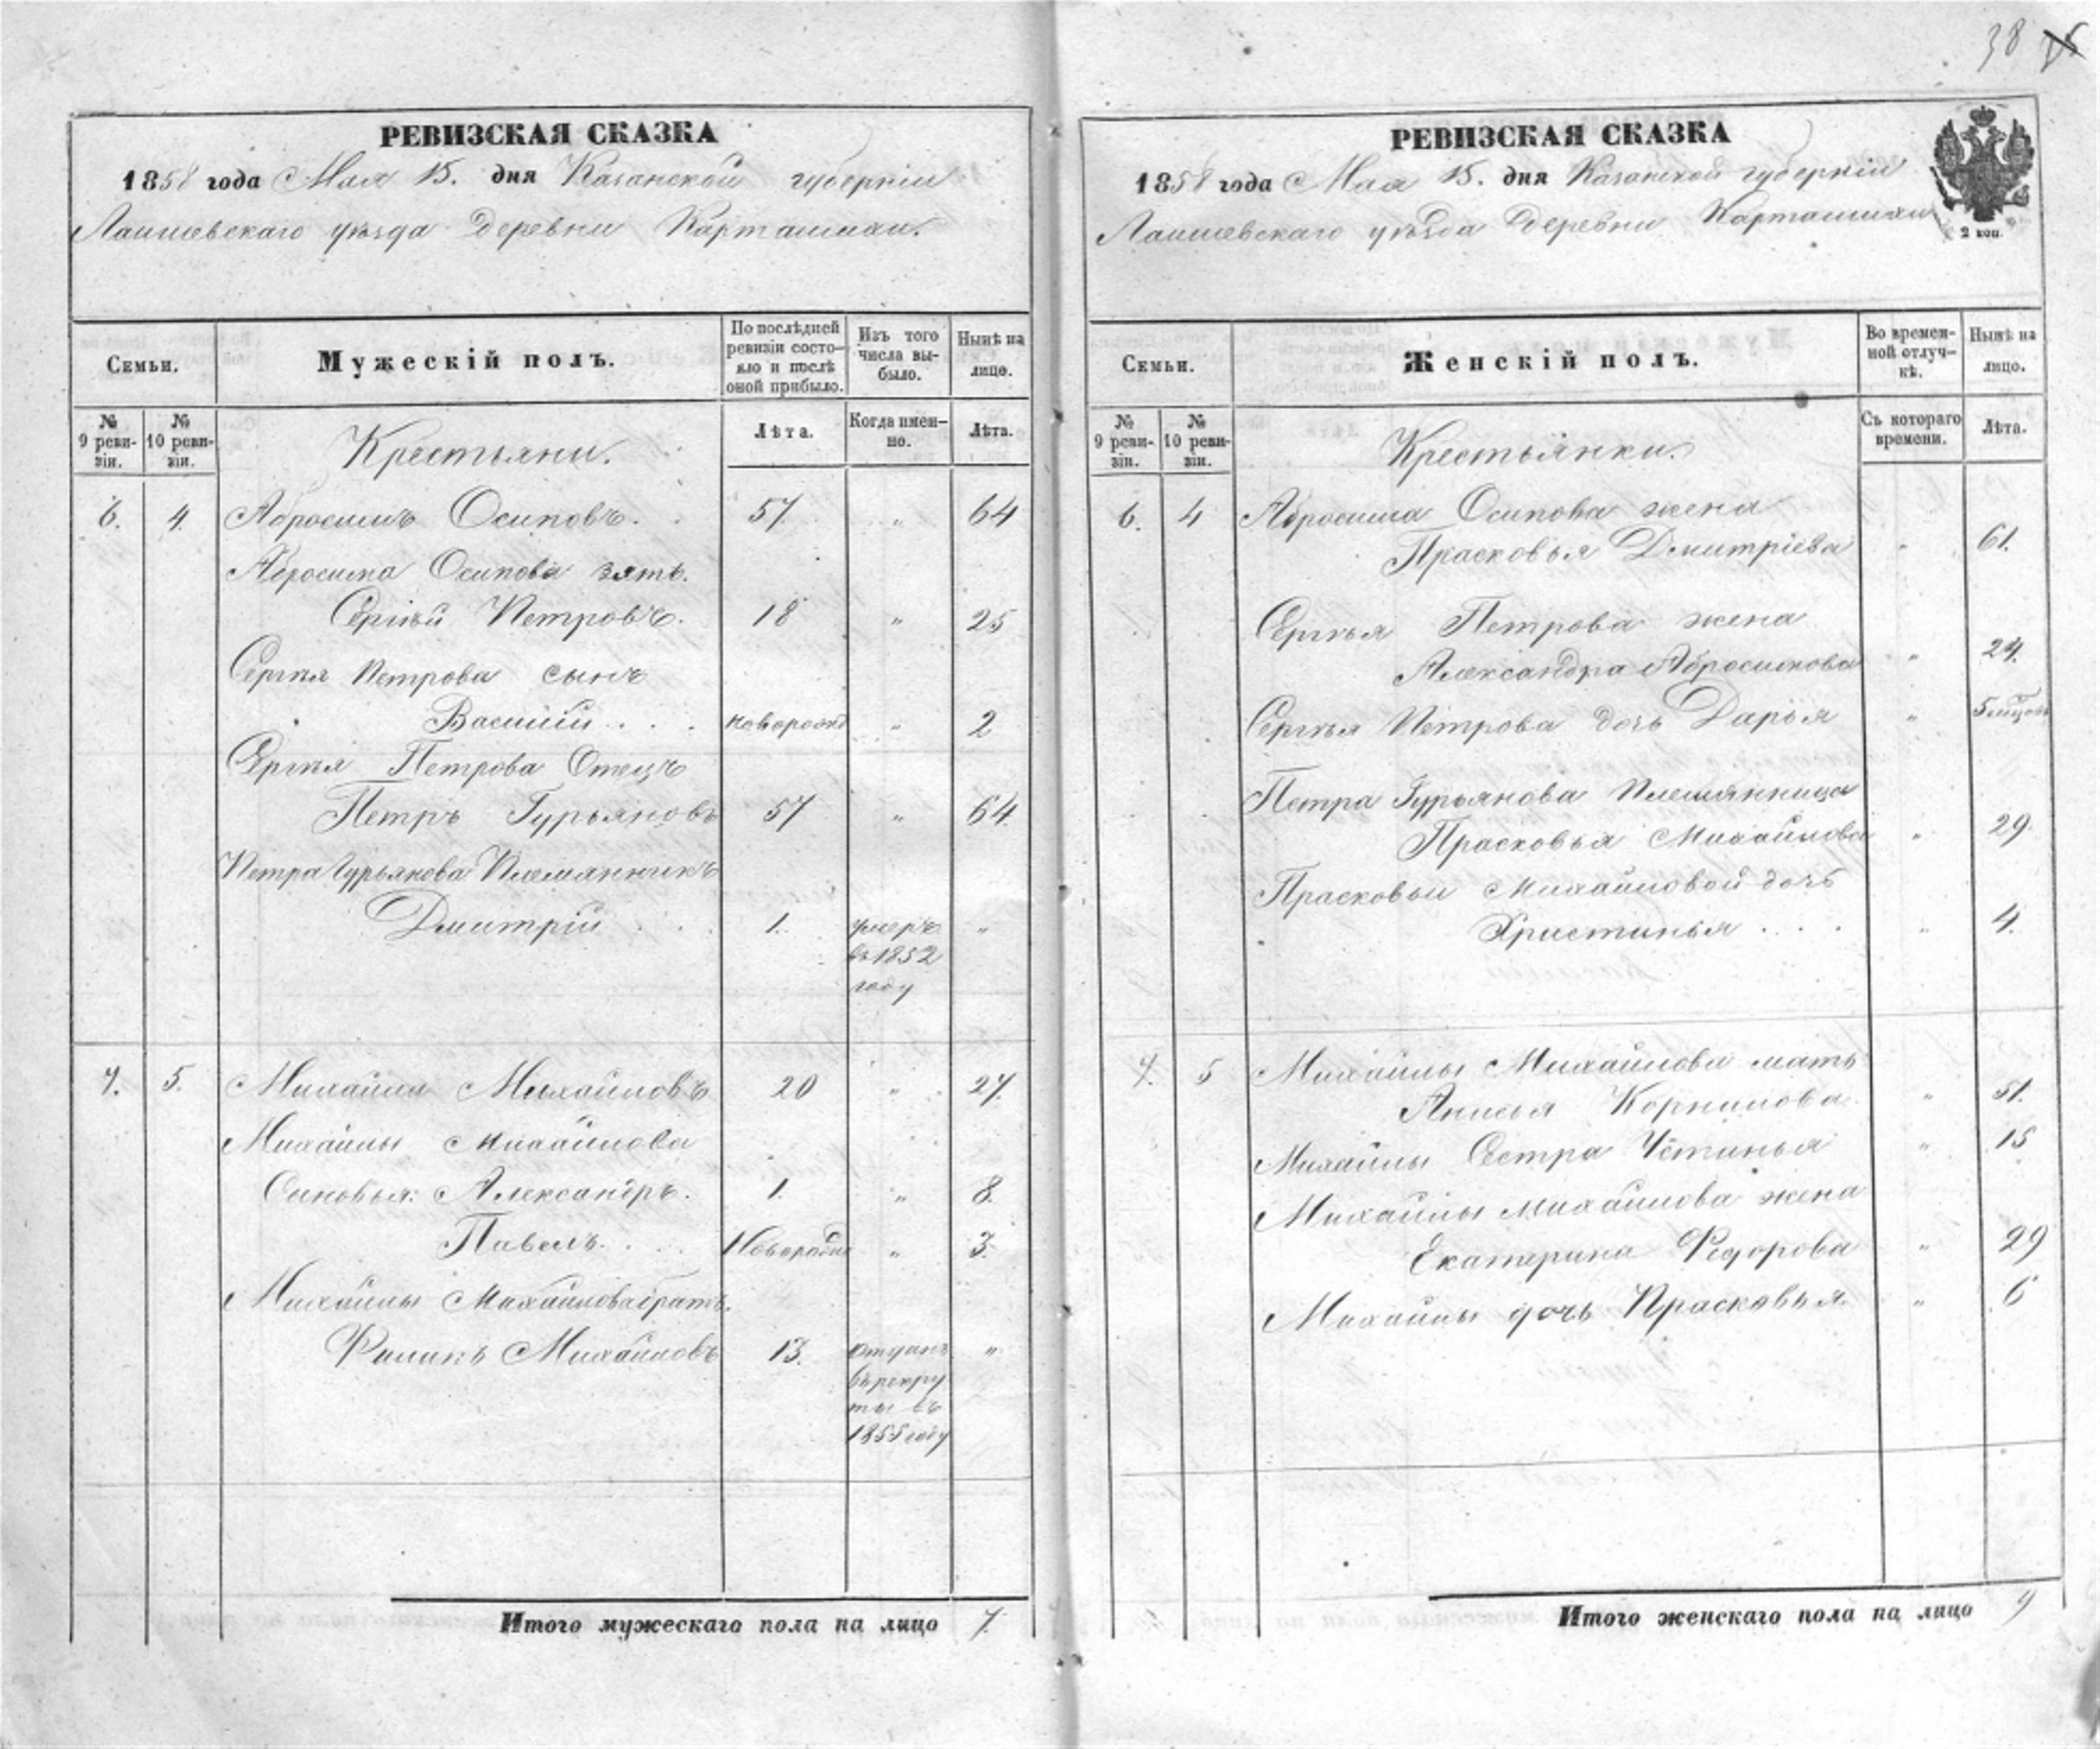 38
РЕВИЗСКАЯ СКАЗКА
1858 года Мая 15. дня Казанской губерніи
Лаишевскаго уѣзда Деревни Карташихи.
Семьи.
Мужескій полъ.
По послѣдней ревизіи состо-
яло и послѣ
оной прибыло.
Изъ того
числа вы-
было.
Нынѣ на
лицо.
№
9 реви-
зіи.
№
10 реви-
зіи.
Крестьяни.
Лѣта.
Когда имен-
но.
Лѣта.
6. 4. Абросимъ Осиповъ. 57 " 64
Абросима Осипова зять.
Сергѣй Петровъ. 18 " 25
Сергѣя Петрова сынъ
Василій . . . новорожд " 2
Сергѣя Петрова Отецъ
Петръ Гурьяновъ 57 " 64
Петра Гурьянова Племянникъ
Дмитрій . . . 1. умеръ "
въ 1852
году
7. 5. Михайла Михайловъ 20 " 27.
Михайлы Михайлова
Сыновья: Александръ. 1. " 8.
Павелъ. . . . Новорожд " 3.
Михайлы Михайлова братъ.
Филипъ Михайловъ 13. отданъ "
въ рекру
ты въ
1855 году
Итого мужескаго пола на лицо 7.
РЕВИЗСКАЯ СКАЗКА
1858 года Мая 15. дня Казанской губерніи
Лаишевскаго уѣзда Деревни Карташихи
2 коп.
Семьи.
Женскій полъ.
Во времен-
ной отлуч-
кѣ.
Нынѣ на
лицо.
№
9 реви-
зіи.
№
10 реви-
зіи.
Крестьянки.
Съ котораго
времени.
Лѣта.
6. 4 Абросима Осипова жена
Прасковья Дмитріева " 61.
Сергѣя Петрова жена
Александра Абросимова " 24.
Сергѣя Петрова дочь Дарья " 5 мѣцовъ
Петра Гурьянова Племянница
Прасковья Михайлова " 29.
Прасковьи Михайловой дочь
Христинья . . . " 4.
7. 5 Михайлы Михайлова мать
Анисья Корнилова. " 51.
Михайлы Сестра Устинья " 15
Михайлы Михайлова жена
Екатерина Федорова " 29
Михайлы дочь Прасковья. " 6
Итого женскаго пола на лицо 9